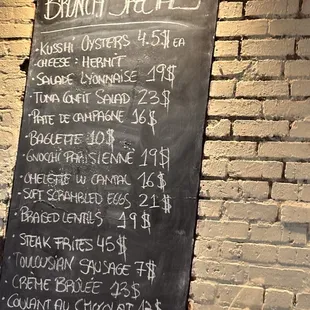 BRUNCH SPECIALS
· KUSSHI OYSTERS 4.5$ EA
· CHEESE: HERMIT
· SALADE LYONNAISE 19$
· TUNA CONFIT SALAD 23$
· PATE DE CAMPAGNE 16$
· BAGUETTE 10$
· GNOCHI PARISIENNE 19$
· OMELETTE W CANTAL 16$
· SOFT SCRAMBLED EGGS 21$
· BRAISED LENTILS 19$
· STEAK FRITES 45$
· TOULOUSIAN SAUSAGE 7$
· CRÈME BRÛLÉE 13$
· COULANT AU CHOCOLAT